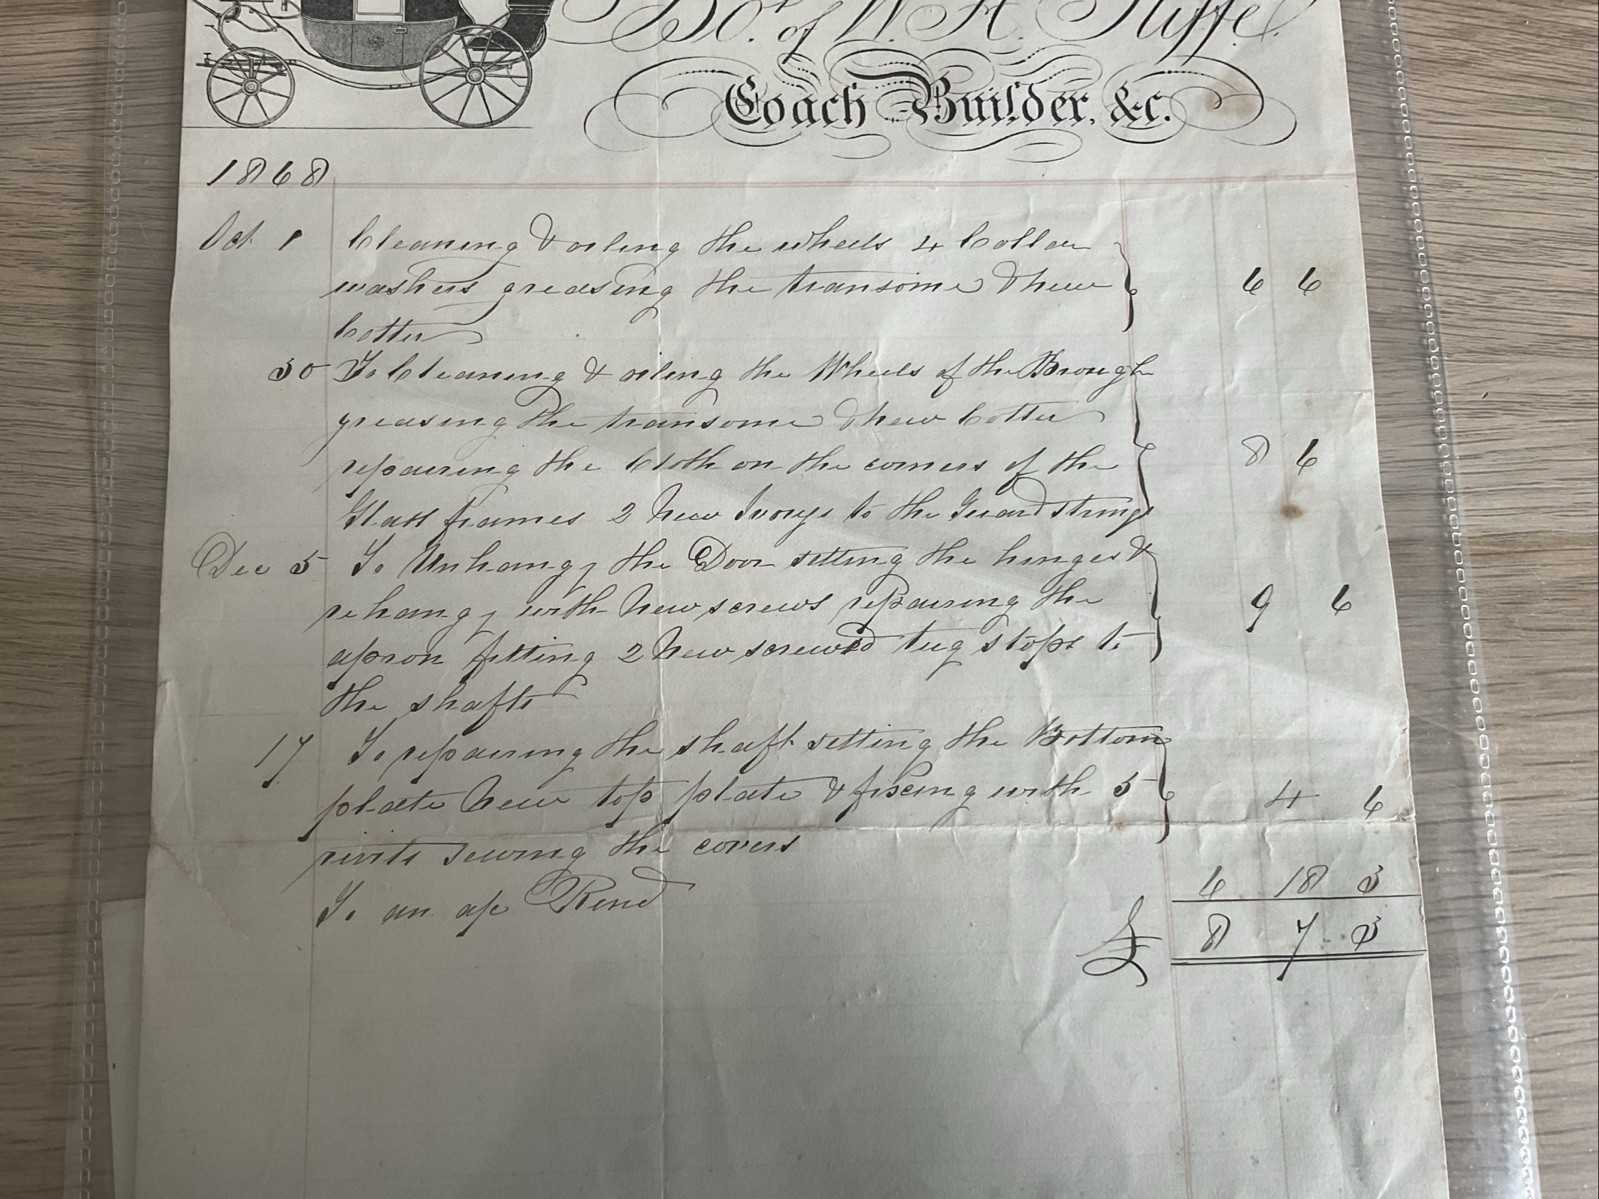 Bot. of W. H.
Coach Builder, &c.
1868
Oct 1 Cleaning & oiling the wheels 4 Collar
washers greasing the transome & new 6 6
Cotter
30 To Cleaning & oiling the Wheels of the Brough
greasing the transome & new Cotter
repairing the Cloth on the corners of the 8 6
Glass frames 2 New Ivorys to the Guard string
Dec 5 To Unhangg the Door setting the hinges &
rehangg with New screws repairing the 9 6
apron fitting 2 New screwed tug stops to
the shafts
17 To repairing the shaft setting the Bottom
plate New top plate & fixing with 5 4 6
rivits sewing the covers
To an a/c Rend 6 18 3
£ 8 7 3